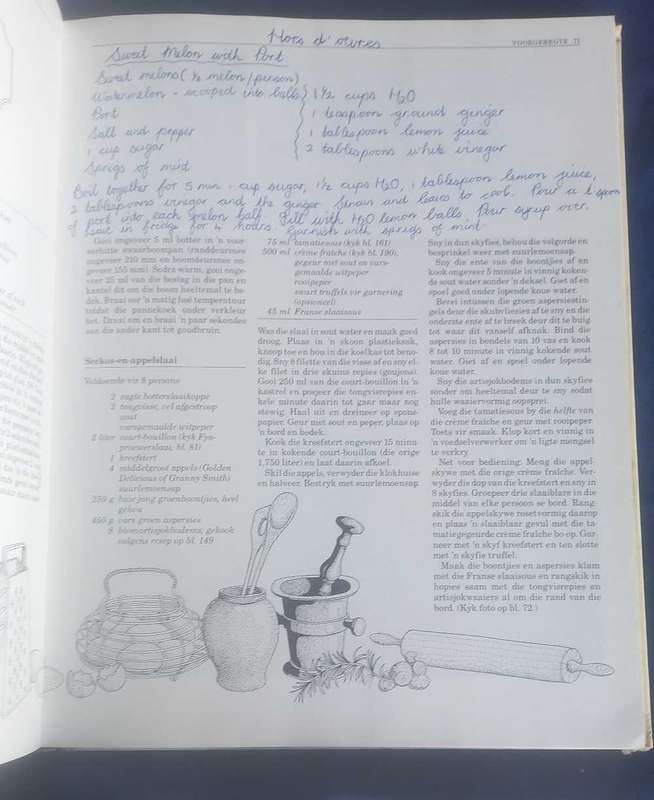 Hors d'ouvres
VOORGEREGTE 71
Sweet Melon with Port
Sweet melons (½ melon/person)
Watermelon - scooped into balls
Port
Salt and pepper
1 cup sugar
Sprigs of mint
1½ cups H₂O
1 teaspoon ground ginger
1 tablespoon lemon juice
2 tablespoons white vinegar
Boil together for 5 min 1 cup sugar, 1½ cups H₂O, 1 tablespoon lemon juice,
2 tablespoons vinegar and the ginger. Strain and leave to cool. Pour a t.spoon
of port into each melon half. Fill with H₂O lemon balls. Pour syrup over.
in fridge for 4 hours. Garnish with sprigs of mint.
Gooi ongeveer 5 ml botter in 'n voor-
verhitte swaarboompan (randdeursnee
ongeveer 210 mm en boomdeursnee on-
geveer 155 mm). Sodra warm, gooi onge-
veer 25 ml van die beslag in die pan en
kantel dit om die boom heeltemal te be-
dek. Braai oor 'n matig hoë temperatuur
totdat die pannekoek onder verkleur
het. Draai om en braai 'n paar sekondes
aan die ander kant tot goudbruin.
Seekos-en-appelslaai
Voldoende vir 8 persone
2 vaste botterslaaikoppe
2 tongvisse, vel afgestroop
sout
varsgemaalde witpeper
2 liter court-bouillon (kyk Fyn-
proewerslaai, bl. 81)
1 kreefstert
4 middelgroot appels (Golden
Delicious of Granny Smith)
suurlemoensap
250 g baie jong groenboontjies, heel
gehou
450 g vars groen aspersies
8 blomartisjokbodems, gekook
volgens resep op bl. 149
75 ml tamatiesous (kyk bl. 161)
500 ml crème fraîche (kyk bl. 190),
gegeur met sout en vars-
gemaalde witpeper
rooipeper
swart truffels vir garnering
(opsioneel)
45 ml Franse slaaisous
Was die slaai in sout water en maak goed
droog. Plaas in 'n skoon plastieksak,
knoop toe en hou in die koelkas tot beno-
dig. Sny 8 filette van die visse af en sny el-
ke filet in drie skuins repies (goujons).
Gooi 250 ml van die court-bouillon in 'n
kastrol en posjeer die tongvisrepies en-
kele minute daarin tot gaar maar nog
stewig. Haal uit en dreineer op spons-
papier. Geur met sout en peper, plaas op
'n bord en bedek.
Kook die kreefstert ongeveer 15 minu-
te in kokende court-bouillon (die orige
1,750 liter) en laat daarin afkoel.
Skil die appels, verwyder die klokhuise
en halveer. Bestryk met suurlemoensap.
Sny in dun skyfies, behou die valgorde en
besprinkel weer met suurlemoensap.
Sny die ente van die boontjies af en
kook ongeveer 5 minute in vinnig koken-
de sout water sonder 'n deksel. Giet af en
spoel goed onder lopende koue water.
Berei intussen die groen aspersiestin-
gels deur die skubvliesies af te sny en die
onderste ente af te breek deur dit te buig
tot waar dit vanself afknak. Bind die
aspersies in bondels van 10 vas en kook
8 tot 10 minute in vinnig kokende sout
water. Giet af en spoel onder lopende
koue water.
Sny die artisjokbodems in dun skyfies
sonder om heeltemal deur te sny sodat
hulle waaiervormig oopsprei.
Voeg die tamatiesous by die helfte van
die crème fraîche en geur met rooipeper.
Toets vir smaak. Klop kort en vinnig in
'n voedselverwerker om 'n ligte mengsel
te verkry.
Net voor bediening: Meng die appel-
skywe met die orige crème fraîche. Ver-
wyder die dop van die kreefstert en sny in
8 skyfies. Groepeer drie slaaiblare in die
middel van elke persoon se bord. Rang-
skik die appelskywe rosetvormig daarop
en plaas 'n slaaiblaar gevul met die ta-
matiegegeurde crème fraîche bo op. Gar-
neer met 'n skyf kreefstert en ten slotte
met 'n skyfie truffel.
Maak die boontjies en aspersies klam
met die Franse slaaisous en rangskik in
hopies saam met die tongvisrepies en
artisjokwaaiers al om die rand van die
bord. (Kyk foto op bl. 72.)